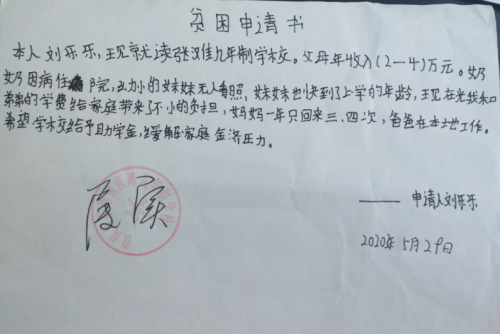 贫困申请书
本人刘乐乐，现就读张滩九年制学校。父母年收入(2-4)万元。奶
奶因病住院，幼小的妹妹无人看照，妹妹也快到了上学的年龄，现在光我和
弟弟的学费给家庭带来了不小的负担，妈妈一年只回来三、四次，爸爸在本地工作。
希望学校给予助学金，缓解家庭经济压力。
——申请人刘乐乐
2020年5月29日